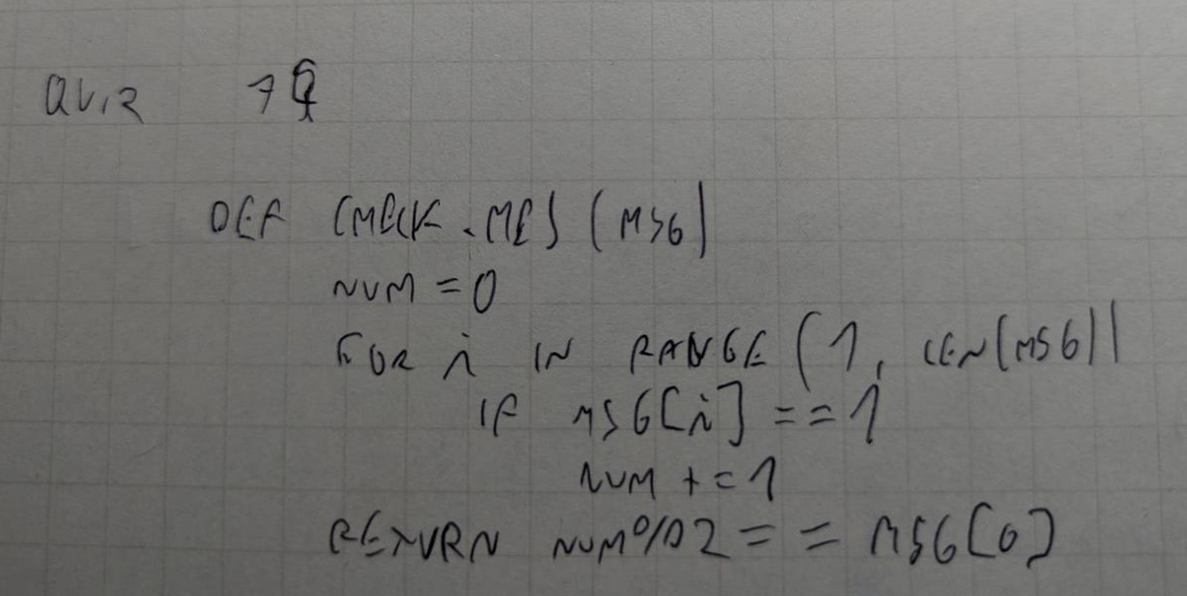 QUIZ 79
DEF CHECK_MES (MSG)
NUM = 0
FOR i IN RANGE (1, LEN(MSG))
IF MSG[i] == 1
NUM += 1
RETURN NUM%2 == MSG[0]